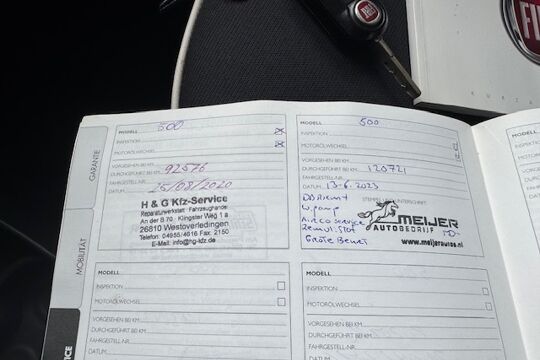 GARANTIE
MOBILITÄT
MODELL 500
INSPEKTION
MOTORÖLWECHSEL
VORGESEHEN BEI KM
DURCHGEFÜHRT BEI KM 92576
FAHRGESTELL-NR.
DATUM 25/08/2020
H & G Kfz-Service
Reparaturwerkstatt · Fahrzeughandel
An der B 70 · Klingster Weg 1 a
26810 Westoverledingen
Telefon: 04955/4616 Fax: 2150
E-Mail: info@hg-kfz.de
MODELL
INSPEKTION
MOTORÖLWECHSEL
VORGESEHEN BEI KM
DURCHGEFÜHRT BEI KM
FAHRGESTELL-NR.
DATUM
MODELL 500
INSPEKTION
MOTORÖLWECHSEL
VORGESEHEN BEI KM
DURCHGEFÜHRT BEI KM 120721
FAHRGESTELL-NR.
DATUM 13-6-2023
W.pomp
Airco service
Grote Beurt
MEIJER
AUTOBEDRIJF
www.meijerautos.nl
MODELL
INSPEKTION
MOTORÖLWECHSEL
VORGESEHEN BEI KM
DURCHGEFÜHRT BEI KM
FAHRGESTELL-NR.
DATUM